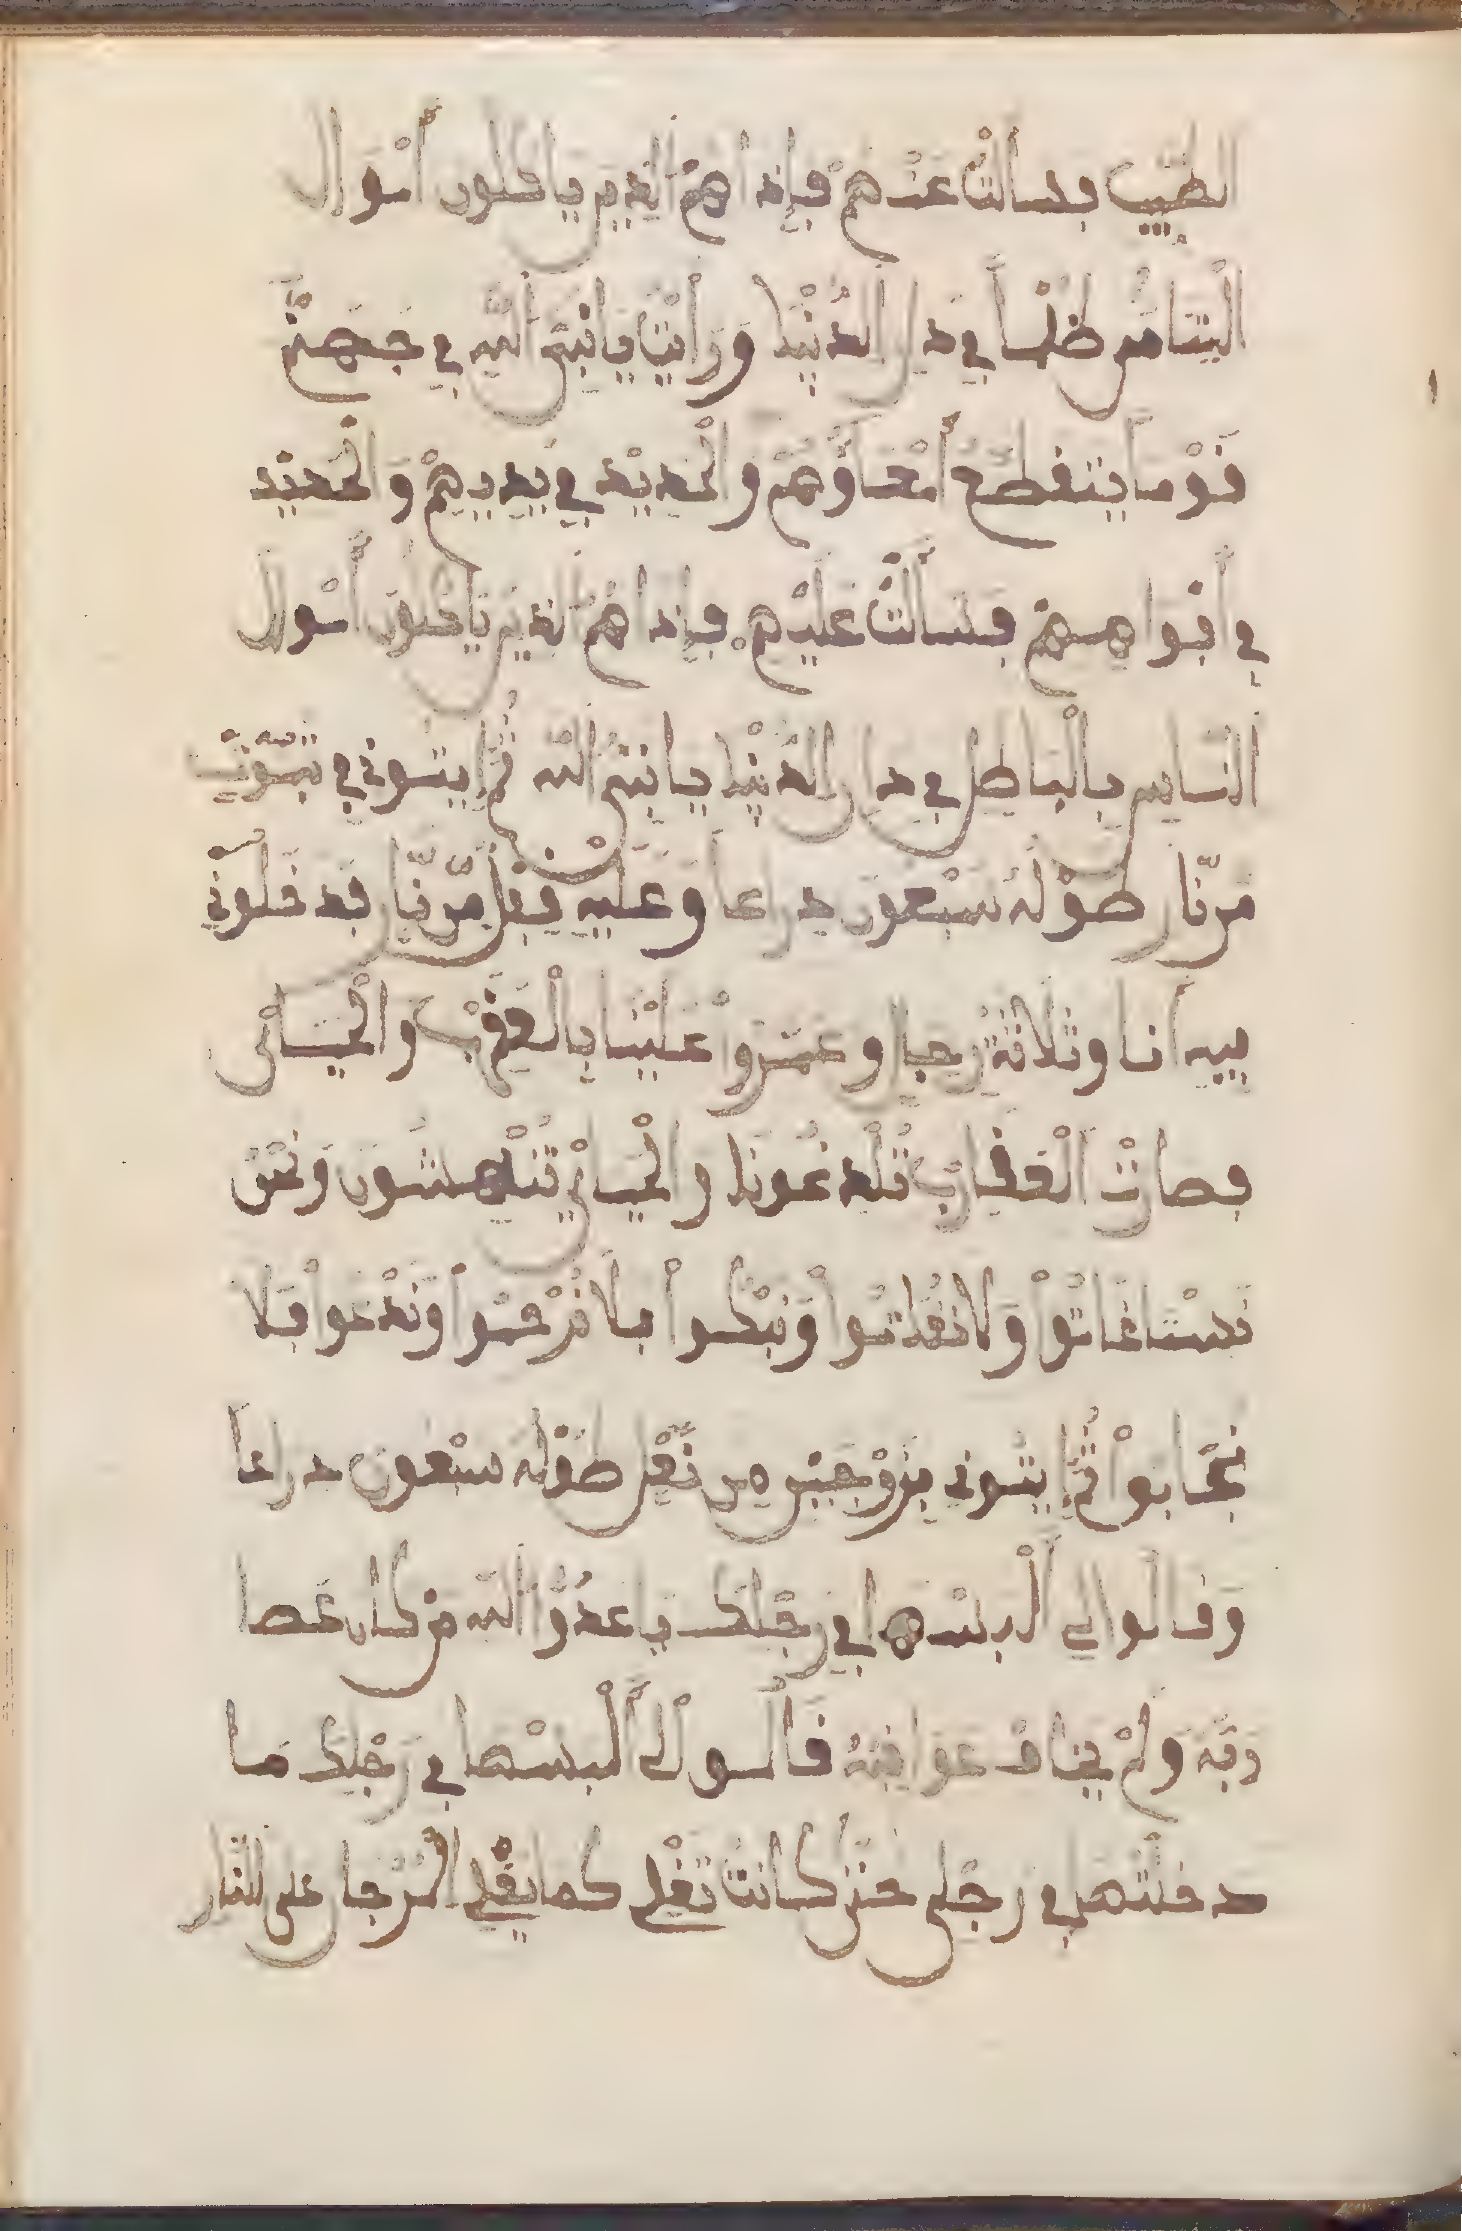 الطَّيِّب فسألتُ عنهُمْ فإذا هُمْ الذين ياكلون أمْوال
اليتَامى ظُلْماً في دار الدُّنْيَا وَرَأَيْتُ يا نَبِيَّ اللّه في جَهنَّم
قَوْماً يتقطّعُ أمْعاؤُهُمْ والْحديْد في يْديهِمْ وَالْحديْد
في أفْواههمْ فسَألْتُ عَليْهمْ فإذا هُمْ الذين يَاكلونَ أمْوال
النّاس بالْباطِل في دار الدُّنْيا يا نبيَّ اللّه ثُمَّ يتوني
مِّن نّار طُوْلُهُ سَبْعونَ دراعاً وَعَليْه قفْل مِّن نّار
فيه أنا وثلاثةُ رجال وعَمّروا عَليْنا بالْعَقْرب والْحيّات
فصارتْ الْعَقاربُ تُلْدغُونا والْحيّاتْ تُنْهشُونَ ونحْنُ
نَسْتاغاثوْا وَلا نغُاثوْا وَنَبْكوا فلا نُرْحموْا وندْعوْا فَلا
نجْابوْا ثُمَّ يتوني بزوْجيْن من نَّعْل طُوْلُهُ سبْعون دراعاً
وَقالوا لي ألْبسْها في رجْلِك يا عدُوَّ اللّه من كان عَصا
ربَّه وَلمْ يخافْ عواقبهُ قَالوْا لي ألْبسْها في رَجْلِكَ مَا
دخلتْها في رجْلي حتّى كانتْ تغْلي كما يغْلي الْمرْجل على النّار